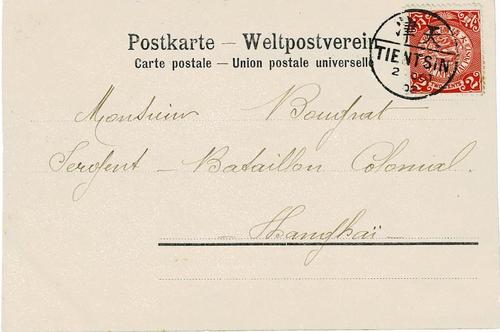 Postkarte — Weltpostverein
Carte postale — Union postale universelle
津 天
TIENTSIN
2
2
Monsieur Bougnat
Sergent - Bataillon Colonial.
Shanghaï